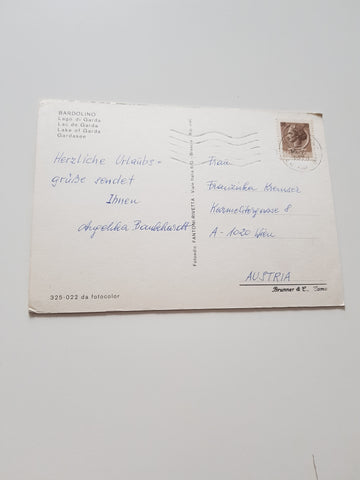 BARDOLINO
Lago di Garda
Lac de Garda
Lake of Garda
Gardasee
Herzliche Urlaubs-
grüße sendet
Ihnen
Angelika
325-022 da fotocolor
Fotoediz. FANTONI-RIVETTA - Viale Italia
Frau
Franziska
Karmelitergasse 8
A-1020 Wien
AUSTRIA
Brunner & C. Como